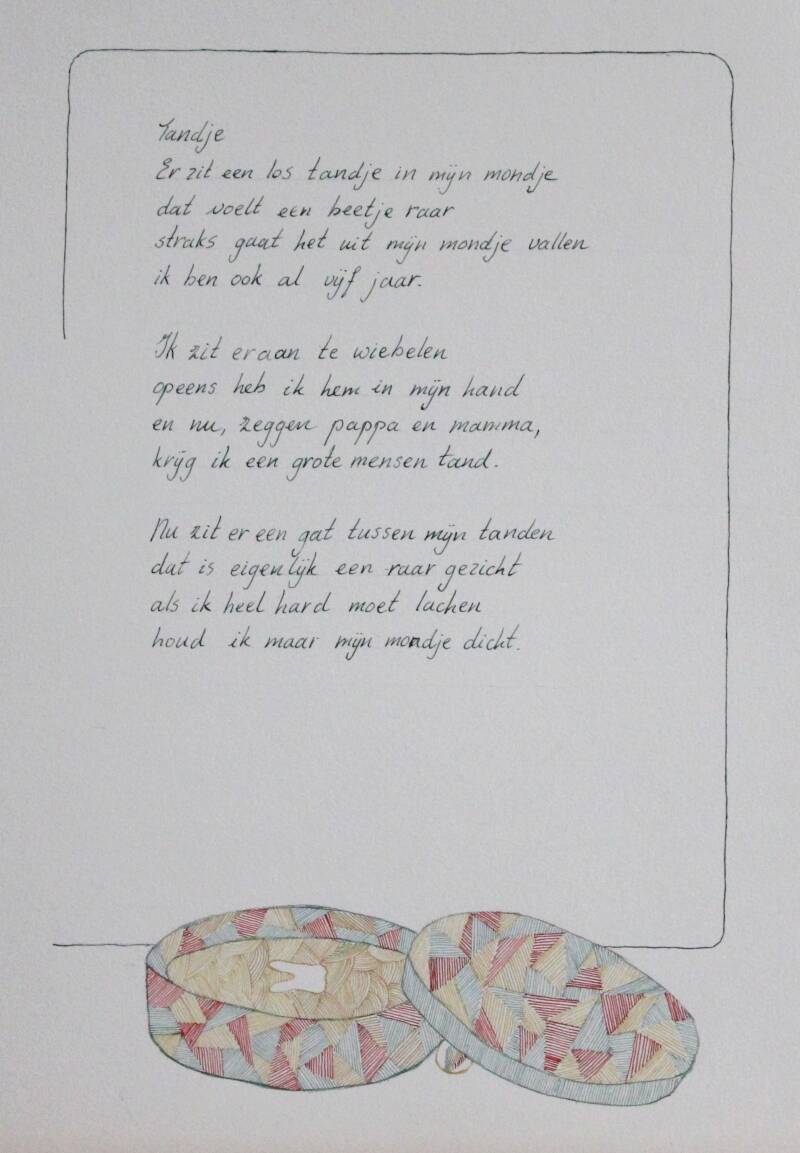 Tandje
Er zit een los tandje in mijn mondje
dat voelt een beetje raar
straks gaat het uit mijn mondje vallen
ik ben ook al vijf jaar.
Ik zit eraan te wiebelen
opeens heb ik hem in mijn hand
en nu, zeggen pappa en mamma,
krijg ik een grote mensen tand.
Nu zit er een gat tussen mijn tanden
dat is eigenlijk een raar gezicht
als ik heel hard moet lachen
houd ik maar mijn mondje dicht.